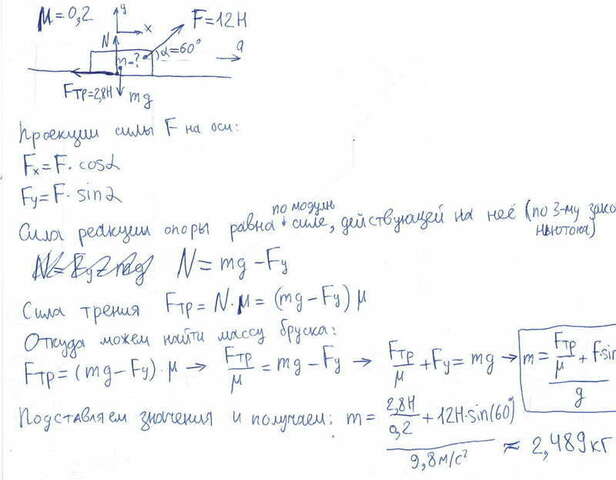 μ=0,2
y
x
N
F=12Н
α=60°
a
m-?
Fтр=2,8Н
mg
Проекции силы F на оси:
Fx=F·cosα
Fy=F·sinα
Сила реакции опоры равна по модулю силе, действующей на неё (по 3-му зако
Ньютона)
N=mg-Fy
Сила трения Fтр=N·μ=(mg-Fy)μ
Откуда можем найти массу бруска:
Fтр=(mg-Fy)·μ → Fтр/μ=mg-Fy → Fтр/μ+Fy=mg → m=(Fтр/μ+F·sin)/g
Подставляем значения и получаем: m=(2,8Н/0,2+12Н·sin(60))/9,8м/с² ≈ 2,489кг